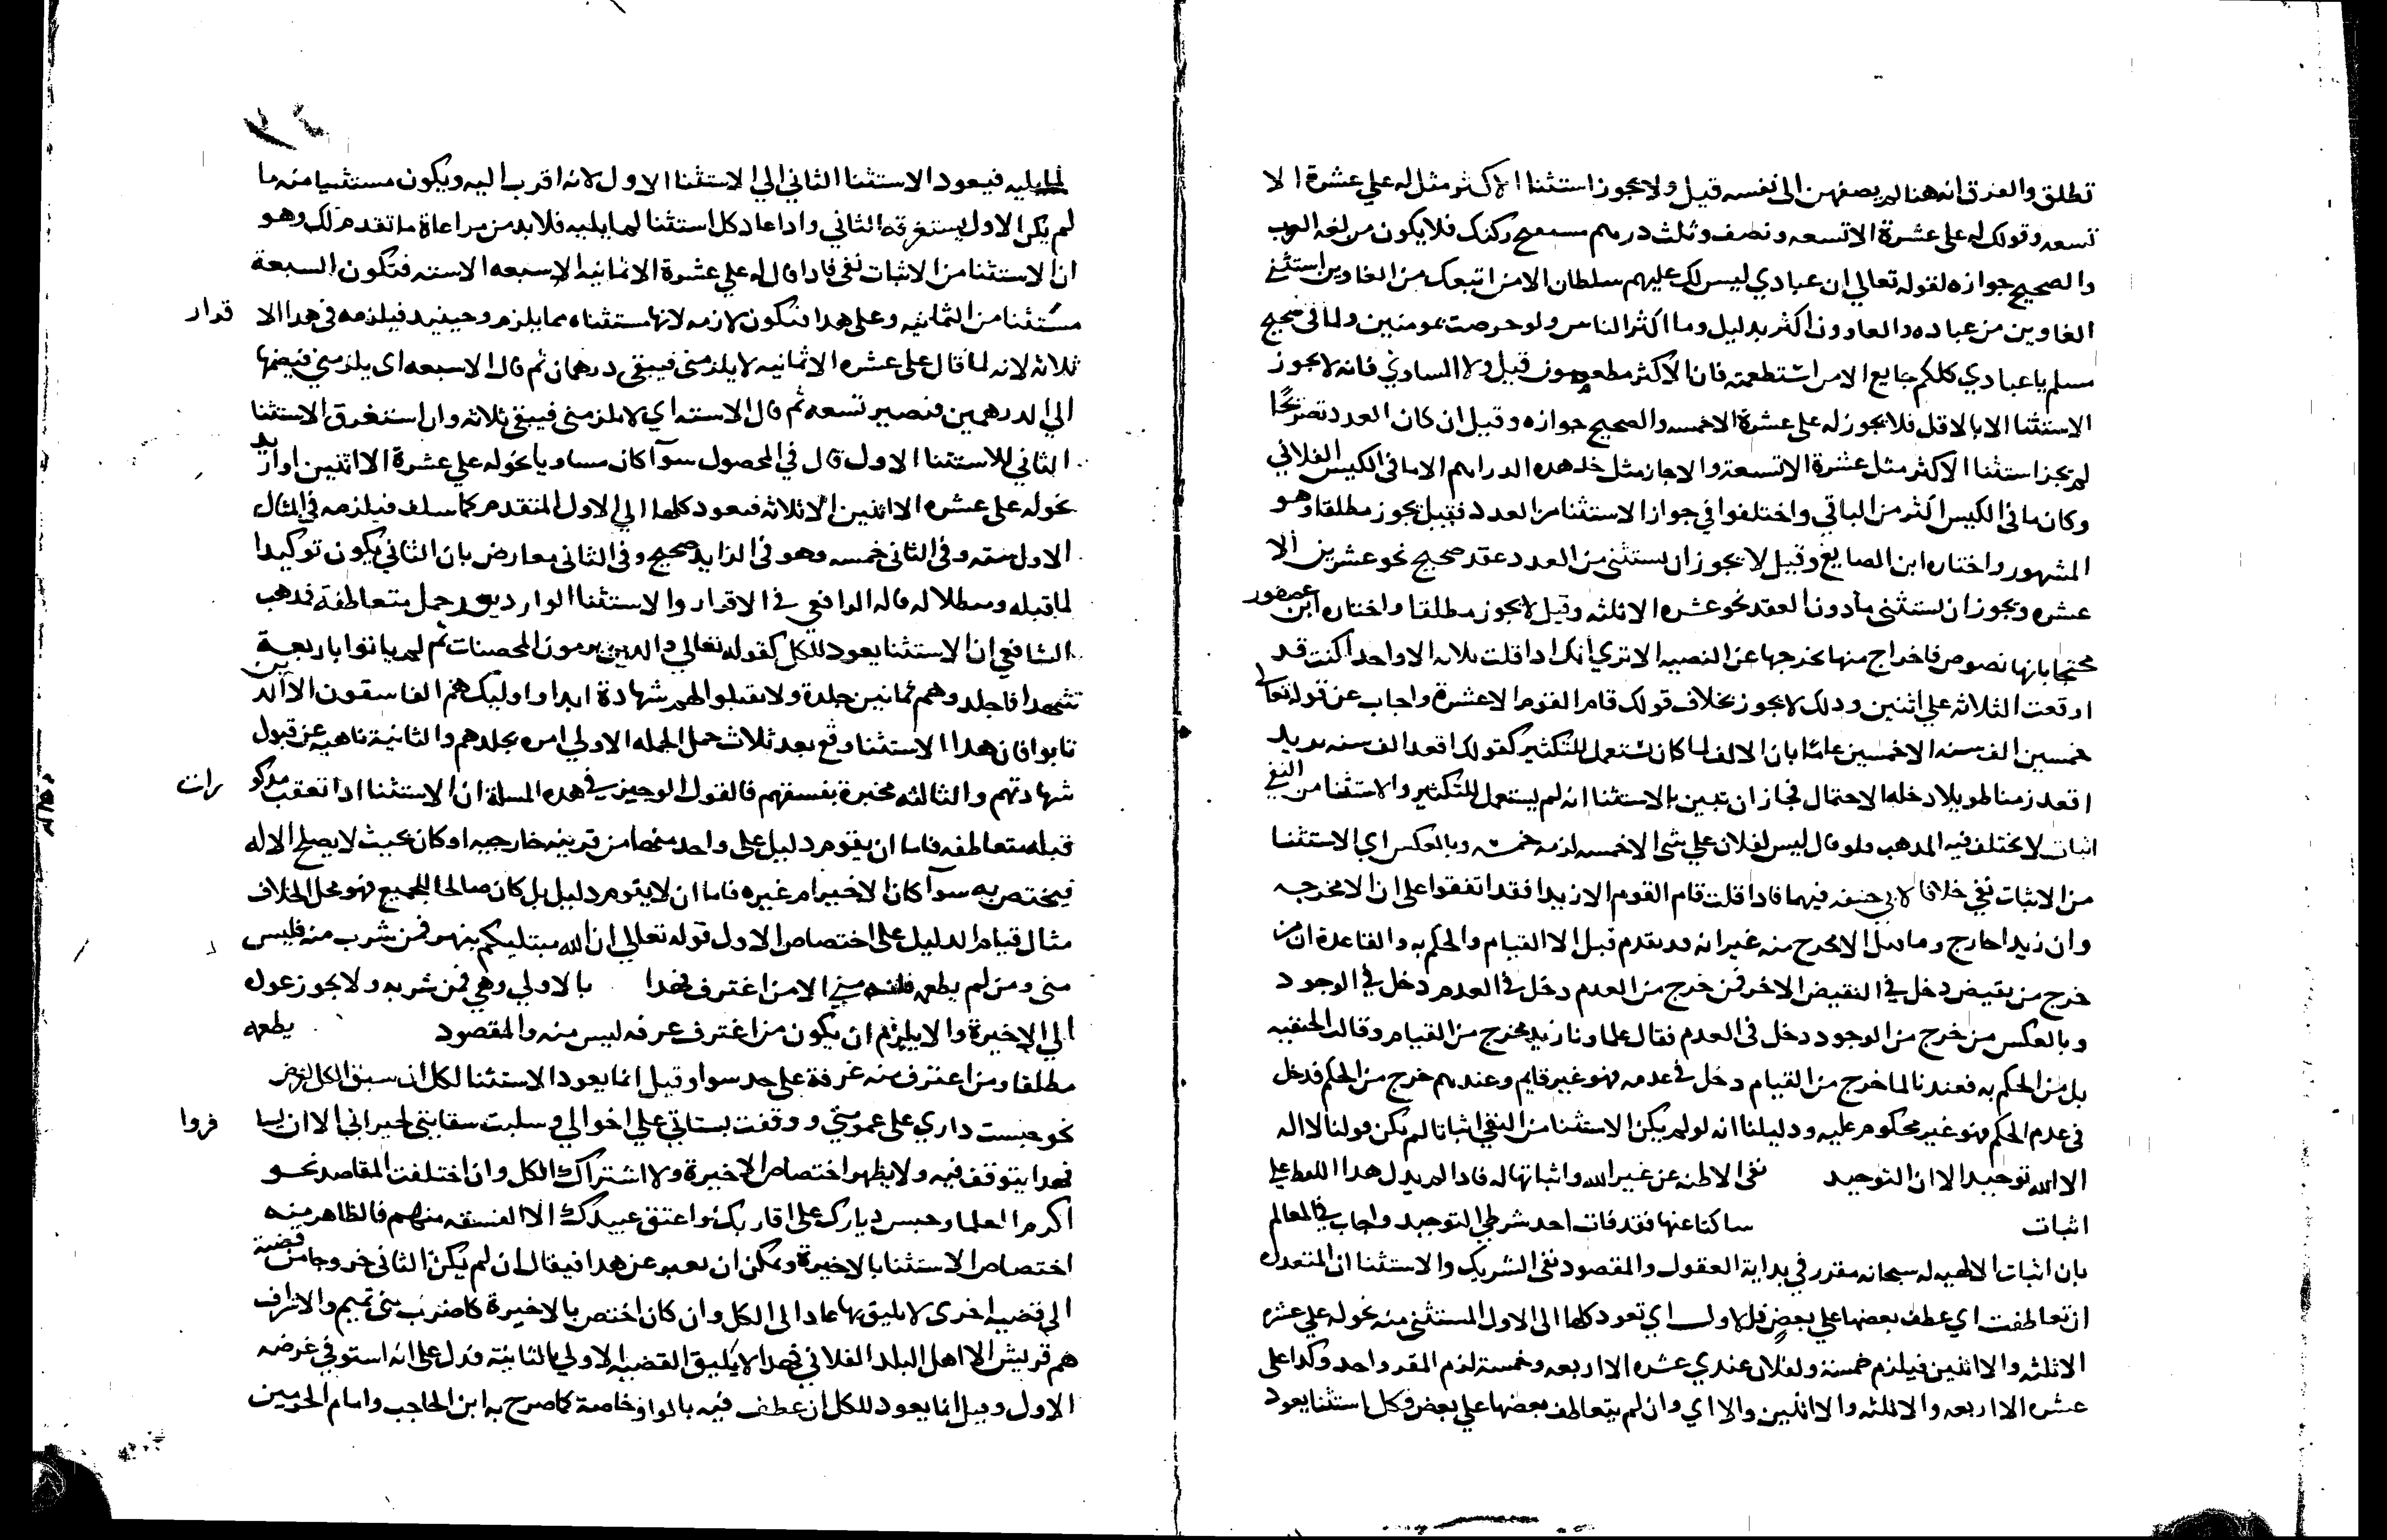 تطلق والفرق انه هنا لم يصفهن الى نفسه قيل ولا يجوز استثنا الاكثر مثل له علي عشرة الا
تسعه وقولك له على عشرة الا تسعه ونصف وثلث درهم مستقبح ركيك فلا يكون من لغه العرب
والصحيح جوازه لقوله تعالي ان عبادي ليس لك عليهم سلطان الا من اتبعك من الغاوين استثني
الغاوين من عباده والغاوون اكثر بدليل وما اكثر الناس ولو حرصت بمومنين ولما في صحيح
مسلم يا عبادي كلكم جايع الا من استطعمته فان الاكثر مطعمون قيل ولا المساوي فانه لا يجوز
الاستثنا الا بالاقل فلا يجوز له على عشرة الا خمسه والصحيح جوازه وقيل ان كان العدد تصريحًا
لم يجز استثنا الاكثر مثل عشرة الا تسعة والا جاز مثل خذ هده الدراهم الا ما في الكيس الفلاني
وكان ما في الكيس اكثر من الباقي واختلفوا في جواز الاستثنا من العدد فقيل يجوز مطلقا وهو
المشهور واختاره ابن الصايغ وقيل لا يجوز ان يستثنى من العدد عقد صحيح نحو عشرين الا
عشره ويجوز ان يستثنى ما دون العقد نحو عشره الا ثلثه وقيل لا يجوز مطلقا واختاره ابن عصفور
محتجا بانها نصوص فاخراج منها يخرجها عن النصيه الا تري انك ادا قلت ثلاثه الا واحدا كنت قد
اوقعت الثلاثه علي اثنين ودلك لا يجوز بخلاف قولك قام القوم الا عشرة واجاب عن قوله تعالى
خمسين الف سنه الا خمسين عاما بان الالف لما كان يستعمل للتكثير كقولك اقعد الف سنه يريد
اقعد زمنا طويلا دخله الاحتمال فجاز ان تبين بالاستثنا انه لم يستعمل للتكثير والاستثنا من النفي
اثبات لا يختلف فيه المدهب فلو قال ليس لفلان علي شي الا خمسه لزمه خمسه وبالعكس اي الاستثنا
من الاثبات نفي خلافا لابي حنيفه فيهما فادا قلت قام القوم الا زيدا فقد اتفقوا على ان الا مخرجه
وان زيدا خارج وما قبل الا مخرج منه غير انه قد تقدم قبل الا القيام والحكم به والقاعدة ان من
خرج من نقيض دخل في النقيض الاخر فمن خرج من العدم دخل في العدم دخل في الوجود
وبالعكس من خرج من الوجود دخل في العدم فقال علماونا زيد مخرج من القيام وقالت الحنفيه
بل من الحكم به فعندنا لما خرج من القيام دخل في عدمه فهو غير قايم وعندهم خرج من الحكم فدخل
في عدم الحكم فهو غير محكوم عليه ودليلنا انه لو لم يكن الاستثنا من النفي اثباتا لم يكن قولنا لا اله
الا الله توحيدا لان التوحيد نفي الالهيه عن غير الله واثباتها له فادا لم يدل هدا اللفظ علي
اثبات ساكتا عنها فقد فات احد شرطي التوحيد واجاب في المعالم
بان اثبات الالهيه له سبحانه مقرر في بداية العقول والمقصود نفي الشريك والاستثنا ان المتعدده
ان تعاطفت اي عطف بعضها علي بعض فللاول اي تعود كلها الى الاول المستثنى منه نحو له علي عشره
الا ثلثه والا اثنين فيلزم خمسة ولفلان عندي عشره الا اربعه وخمسة لزم المقر واحد وكدا على
عشره الا اربعه والا ثلثه والا اثنين والا اي وان لم يتعاطف بعضها علي بعض فكل استثنا يعود
لما يليه فيعود الاستثنا الثاني الي الاستثنا الاول لانه اقرب اليه ويكون مستثنيا منه ما
لم يكن الاول يستغرقه الثاني وادا عاد كل استثنا لما يليه فلا بد من مراعاة ما تقدم لك وهو
ان الاستثنا من الاثبات نفي فادا قال له علي عشرة الا ثمانيه الا سبعه الا سته فتكون السبعة
مستثنا من الثمانيه وعلى هدا فتكون لازمه لانها مستثناه مما يلزم وحينيد فيلزمه في هدا الا قرار
ثلاثه لانه لما قال على عشره الا ثمانيه لا يلزمني فيبقى درهمان ثم قال الا سبعه اي يلزمني فيضمها
الي الدرهمين فتصير تسعه ثم قال الا سته اي لا يلزمني فيبقى ثلاثه وان استغرق الاستثنا
الثاني للاستثنا الاول قال في المحصول سوآ كان مساويا نحو له علي عشرة الا اثنين او ازيد
نحو له على عشره الا اثنين الا ثلاثه فيعود كلها الي الاول المتقدم كما سلف فيلزمه في المثال
الاول سته وفي الثاني خمسه وهو في الزايد صحيح وفي الثاني معارض بان الثاني يكون توكيدا
لما قبله ومبطلا له قاله الرافعي في الاقرار والاستثنا الوارد بعد جمل متعاطفة فدهب
الشافعي ان الاستثنا يعود للكل كقوله تعالي والدين يرمون المحصنات ثم لم ياتوا باربعة
شهدا فاجلدوهم ثمانين جلدة ولا تقبلوا لهم شهادة ابدا واوليك هم الفاسقون الا الدين
تابوا فان هدا الاستثنا وقع بعد ثلاث جمل الجمله الاولي امره بجلدهم والثانية ناهيه عن قبول
شهادتهم والثالثه مخبرة بفسقهم فالقول الوجيز في هده المسلة ان الاستثنا ادا تعقب مدكو رات
قبله متعاطفه فاما ان يقوم دليل على واحد منها من قرينه خارجيه او كان بحيث لا يصلح الا له
فيختص به سوآ كان الاخير ام غيره فاما ان لا يقوم دليل بل كان صالحا للجميع فهو محل الخلاف
مثال قيام الدليل على اختصاص الاول قوله تعالي ان الله مبتليكم بنهر فمن شرب منه فليس
منى ومن لم يطعمه فانه مني الا من اغترف فهدا بالاولي وهي فمن شربه ولا يجوز عوله
الي الاخيرة والا يلزم ان يكون من اغترف غرفه ليس منه والمقصود يطعمه
مطلقا ومن اغترف منه غرفة على حد سوا وقيل انما يعود الاستثنا لكل ان سبق الكل لغرض
نحو حبست داري على عمومتي ووقفت بستاني علي اخوالي وسلبت سقايتي لجيراني الا ان يسا فروا
فهدا يتوقف فيه ولا يظهر اختصاص الاخيرة ولا اشتراك الكل وان اختلفت المقاصد نحو
اكرم العلما وحبس ديارك على اقاربك واعتق عبيدك الا الفسقه منهم فالظاهر منه
اختصاص الاستثنا بالاخيرة ويمكن ان يعبر عن هدا فيقال ان لم يكن الثاني خروجا من قضية
الي قضيه اخرى لا يليق بها عاد الى الكل وان كان اختص بالاخيرة كاضرب بني تميم والاشراف
هم قريش الا اهل البلد الفلاني فهدا لا يليق القضيه الاولي بالثانية فدل على انه استوفي غرضه
الاول وقيل انما يعود للكل ان عطف فيه بالواو خاصة كما صرح به ابن الحاجب وامام الحرمين